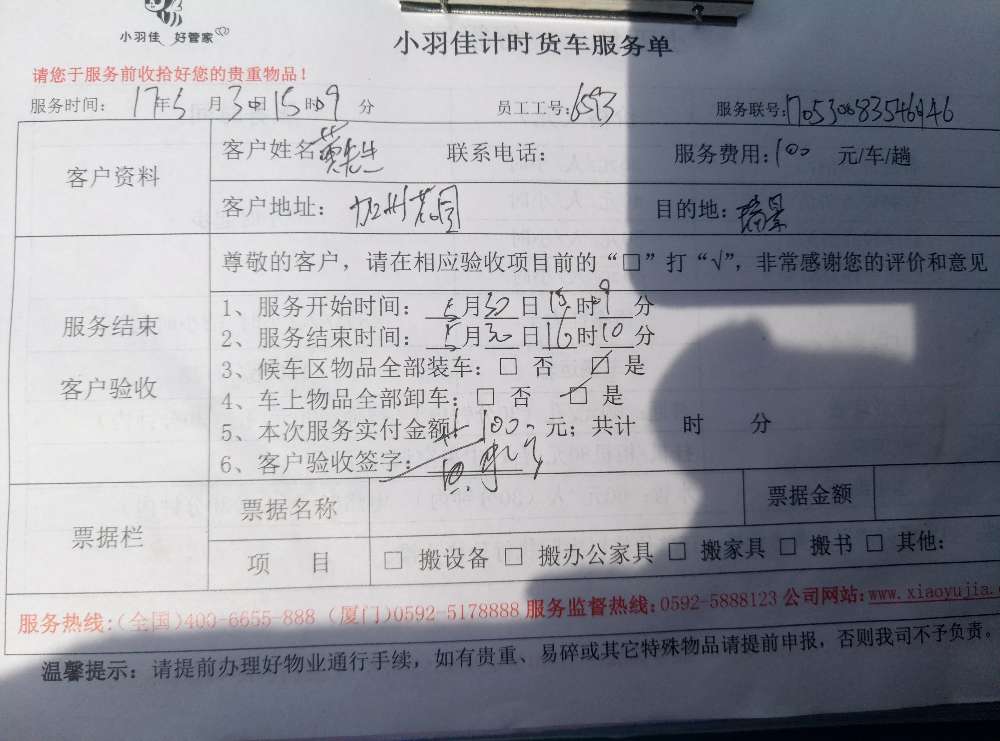 小羽佳 好管家
小羽佳计时货车服务单
请您于服务前收拾好您的贵重物品！
服务时间： 17年5月30日15时09分 员工工号：6593 服务联号：
客户资料
客户姓名 黄先生 联系电话： 服务费用：100 元/车/趟
客户地址： 加州花园 目的地：瑞景
服务结束
客户验收
尊敬的客户，请在相应验收项目前的“□”打“√”，非常感谢您的评价和意见
1、服务开始时间：5月30日15时9分
2、服务结束时间：5月30日16时10分
3、候车区物品全部装车：□ 否 ☑ 是
4、车上物品全部卸车：□ 否 ☑ 是
5、本次服务实付金额 100 元；共计 时 分
6、客户验收签字：
票据栏
票据名称 票据金额
项 目 □ 搬设备 □ 搬办公家具 □ 搬家具 □ 搬书 □ 其他：
服务热线：(全国)400-6655-888 (厦门)0592-5178888 服务监督热线：0592-5888123 公司网站：www.xiaoyujia.
温馨提示：请提前办理好物业通行手续，如有贵重、易碎或其它特殊物品请提前申报，否则我司不予负责。